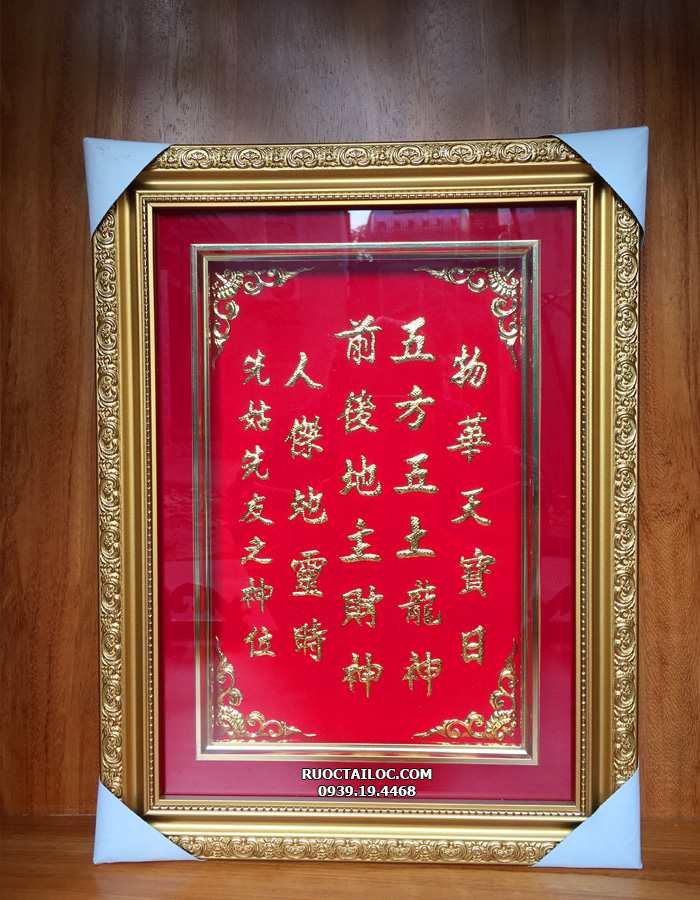 物華天寶日
五方五土龍神
前後地主財神
人傑地靈時
先姑先友之神位
RUOCTAILOC.COM
0939.19.4468